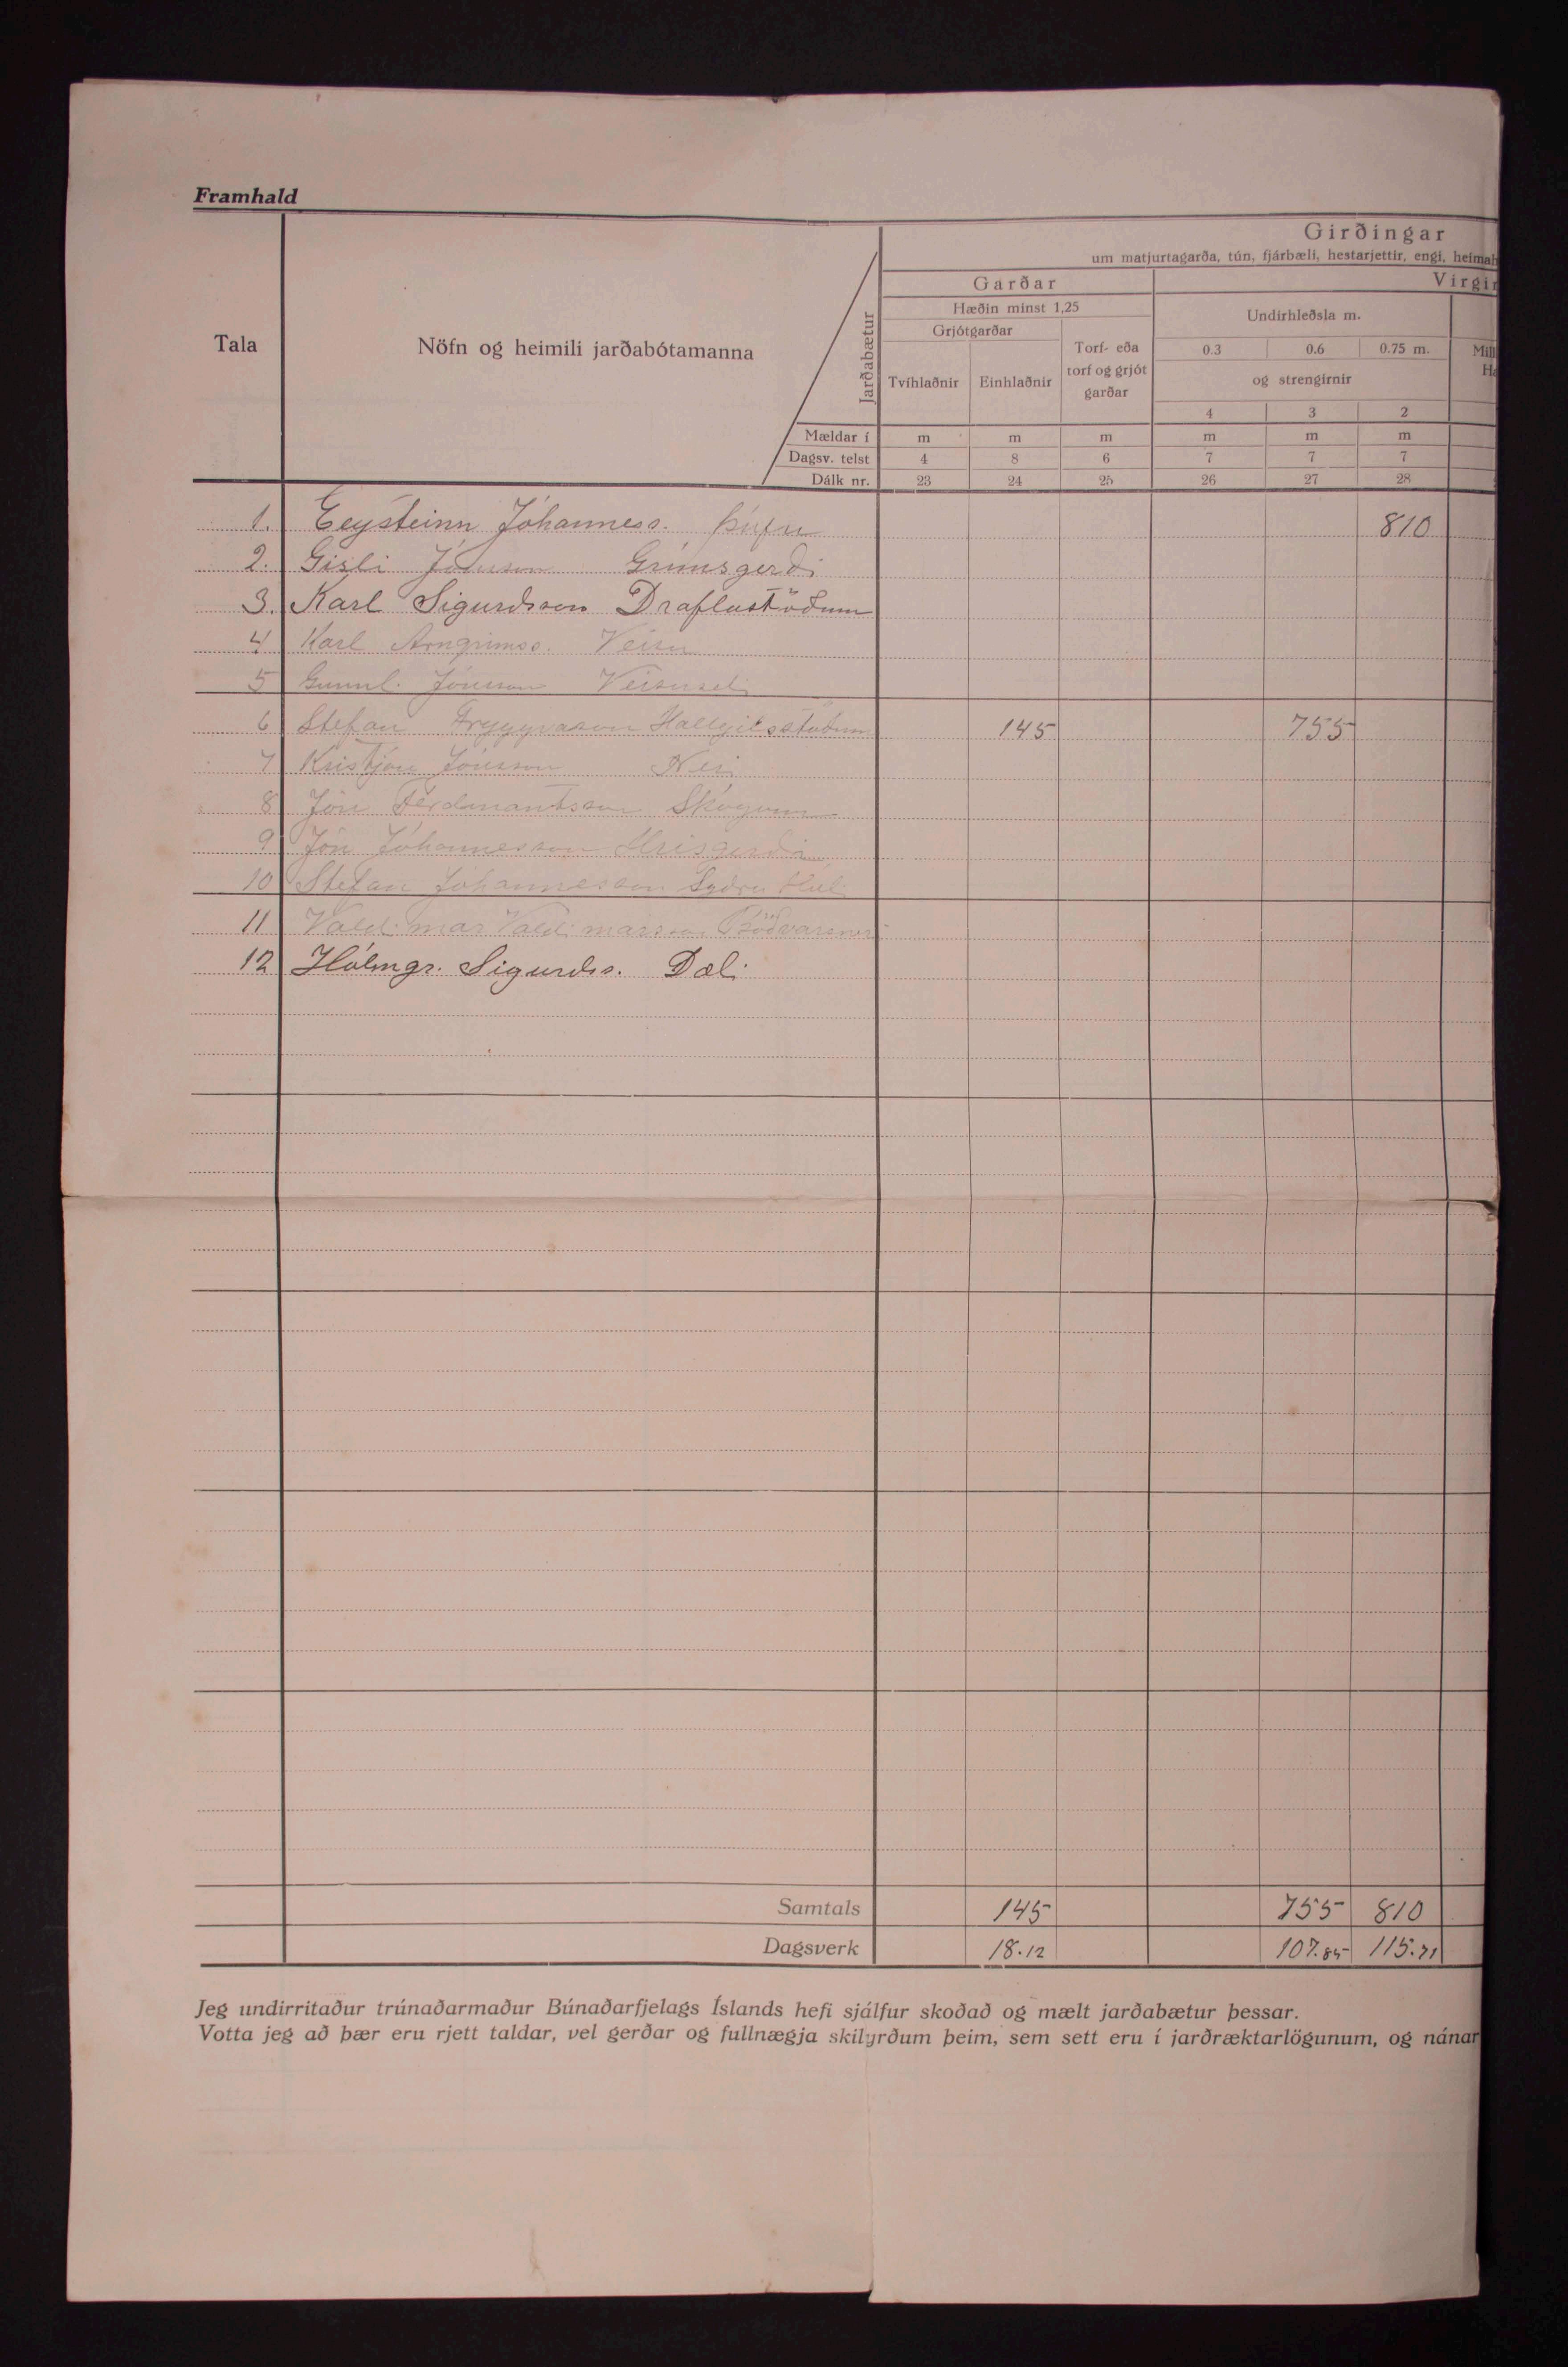 Framhald
Girðingar
um matjurtagarða, tún, fjárbæli, hestarjettir, engi, heimah
Garðar
Virgir
Hæðin minst 1,25
Undirhleðsla m.
Grjótgarðar
Tala
Nöfn og heimili jarðabótamanna
Jarðabætur
Tvíhlaðnir
Einhlaðnir
Torf- eða
torf og grjót
garðar
0.3 0.6 0.75 m.
Mill
Ha
og strengirnir
4 3 2
Mældar í m m m m m m
Dagsv. telst 4 8 6 7 7 7
Dálk nr. 23 24 25 26 27 28
1. Eeysteinn Jóhanness. Þúfu 810
2. Gísli Jónsson Grímsgerði
3. Karl Sigurdsson Draflastöðum
4 Karl Arngrimss. Veisu
5 Gunnl. Jónsson Veisuseli
6 Stefan Tryggvason Hallgilsstöðum 145 755
7 Kristján Jónsson Nesi
8 Jón Ferdinantsson Skógum
9 Jón Jóhannesson Hrísgerði
10 Stefán Jóhannesson Syðra Hóli
11 Valdimar Valdimarsson Böðvarsnesi
12 Hólmgr. Sigurdss. Dæli
Samtals 145 755 810
Dagsverk 18.12 107.85 115.71
Jeg undirritaður trúnaðarmaður Búnaðarfjelags Íslands hefi sjálfur skoðað og mælt jarðabætur þessar.
Votta jeg að þær eru rjett taldar, vel gerðar og fullnægja skilyrðum þeim, sem sett eru í jarðræktarlögunum, og nánar